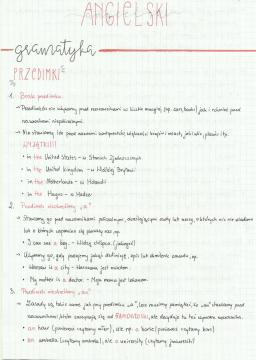 ANGIELSKI
gramatyka
PRZEDIMKI
1. Brak przedimka.
→ Przedimka nie używamy przed rzeczownikami w liczbie mnogiej (np. cars, books) jak i również przed
nazwami niepoliczalnymi.
→ Nie stawiamy the przed nazwami
WYJĄTKI!!!
• in the United States - w Stanach Zjednoczonych
• in the United kingdom - w Wielkiej Brytanii
• in the Netherlands - w Holandii
• in the Hague - w Hadze
2. Przedimek nieokreślony „a"
• Stawiamy go przed rzeczownikami policzalnymi, określającymi osoby lub rzeczy, o których nic nie wiadomo
lub o których wspomina się pierwszy raz np.
• I can see a boy. - Widzę chłopca. (jakiegoś)
• Używamy go, gdy podajemy jakąś definicję, opis lub określenie zawodu, np.
• Warsaw is a city - Warszawa jest miastem.
• My mother is a doctor. - Moja mama jest lekarzem.
3. Przedimek nieokreślony „an"
→ Zasady są takie same jak przy przedimku „a", lecz musimy pamiętać, że „an" stawiamy przed
rzeczownikami, które zaczynają się od SAMOGŁOSKI, ale decyduje tu też wymowa wyrazu np.
• an hour (ponieważ czytamy ), ale np. a horse (ponieważ czytamy hors)
• an umbrella (czytamy ambrela), ale a university (czytamy juniwersiti)